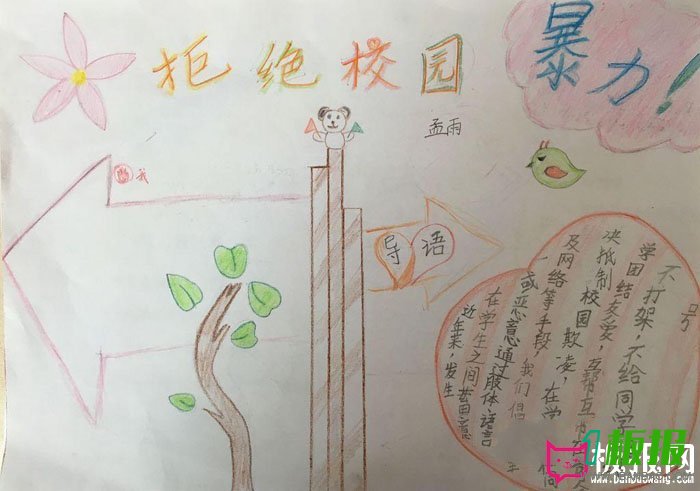 拒绝校园
暴力！
孟雨
我
导语
近年来，发生
在学生之间蓄意
或恶意通过肢体、语言
及网络等手段，我们倡
决抵制校园欺凌，在学
学团结友爱，互帮互
不打架，不给同学
号
1板报
板报网
www.banbaowang.com